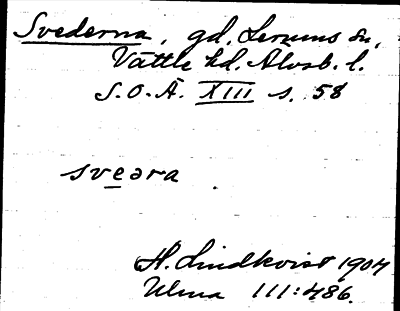 Svederna, gd, Lerums sn,
Vättle hd. Älvsb. l.
S.O.Ä. XIII s. 58
sveəra
H. Lindkvist 1904
Ulma 111:486.